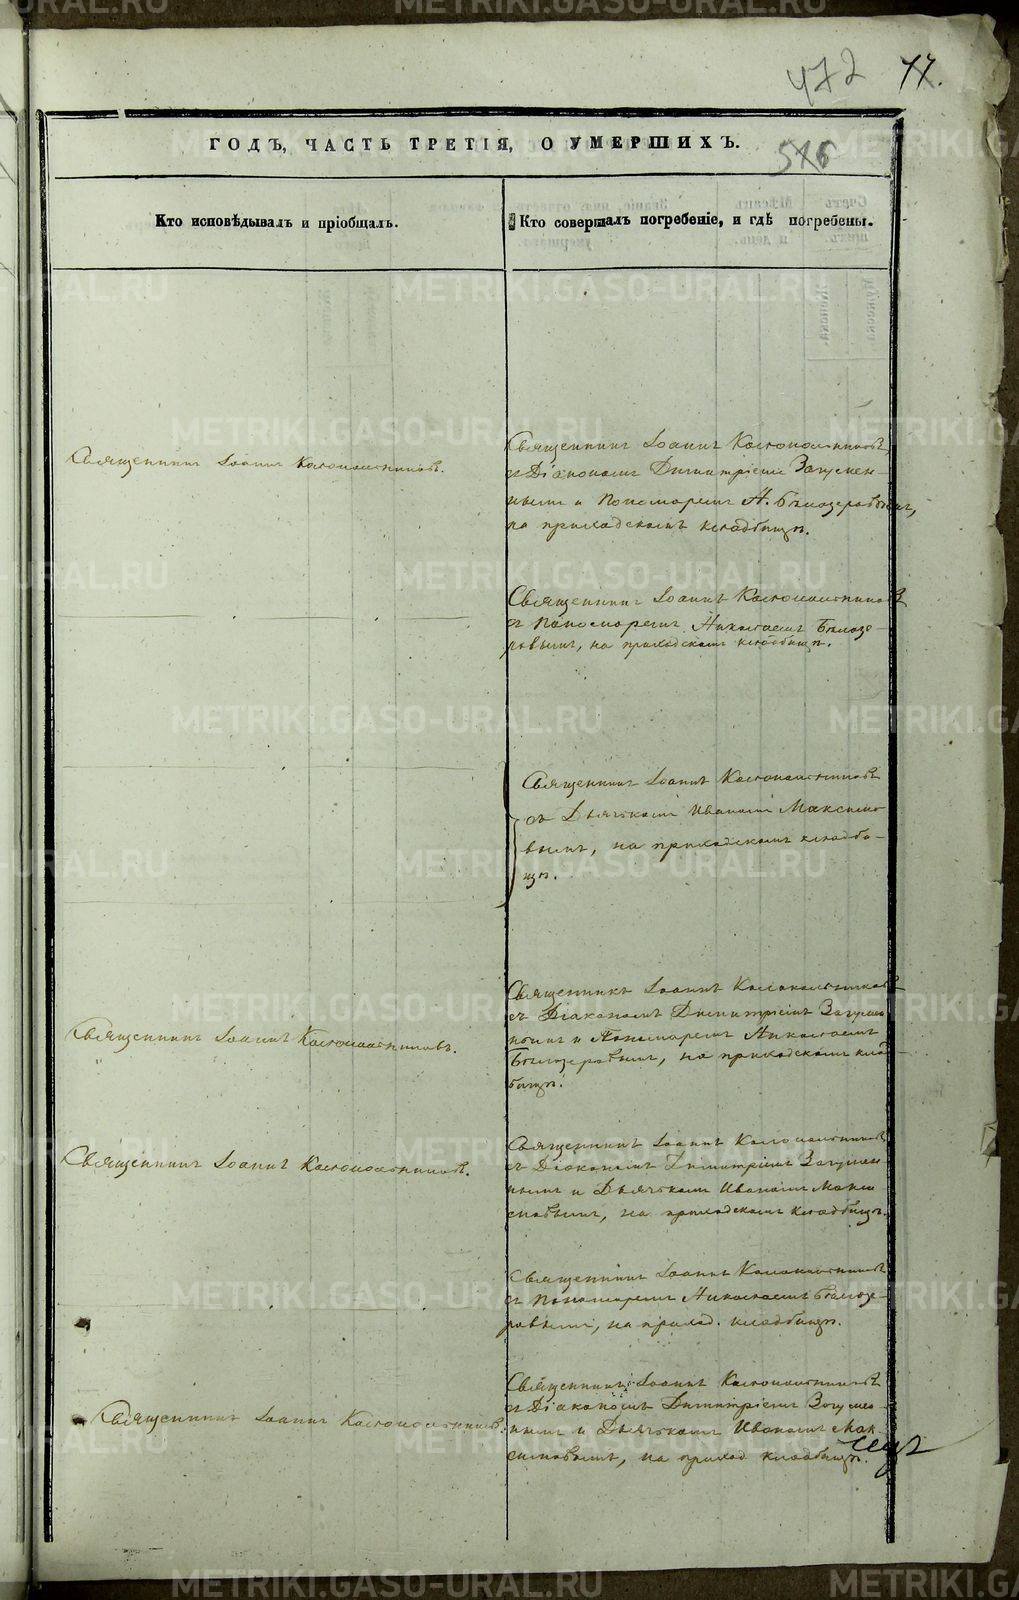 472 77.
ГОДЪ, ЧАСТЬ ТРЕТІЯ, О УМЕРШИХЪ.
516
Кто исповѣдывалъ и пріобщалъ.
Кто совершалъ погребеніе, и гдѣ погребены.
Священникъ Іоаннъ Колокольниковъ.
Священникъ Іоаннъ Колокольниковъ
съ Діакономъ Димитріемъ Загумен-
нымъ и Пономаремъ Н. Бѣлозеровымъ,
на приходскомъ кладбищѣ.
Священникъ Іоаннъ Колокольниковъ
съ Пономаремъ Николаемъ Бѣлозе-
ровымъ, на приходскомъ кладбищѣ.
Священникъ Іоаннъ Колокольниковъ
съ Дьячкомъ Иваномъ Максимо-
вымъ, на приходскомъ кладби-
щѣ.
Священникъ Іоаннъ Колокольниковъ.
Священникъ Іоаннъ Колокольниковъ
съ Діакономъ Димитріемъ Загумен
нымъ и Пономаремъ Николаемъ
Бѣлозеровымъ, на приходскомъ клад-
бищѣ.
Священникъ Іоаннъ Колокольниковъ.
Священникъ Іоаннъ Колокольниковъ
съ Діакономъ Димитріемъ Загумен-
нымъ и Дьячкомъ Иваномъ Макси
мовымъ, на приходскомъ кладбищѣ.
Священникъ Іоаннъ Колокольниковъ
съ Пономаремъ Николаемъ Бѣлозе-
ровымъ, на приход. кладбищѣ.
Священникъ Іоаннъ Колокольниковъ.
Священникъ Іоаннъ Колокольниковъ
съ Діакономъ Димитріемъ Загумен-
нымъ и Дьячкомъ Иваномъ Мак-
симовымъ, на приход кладбищѣ.
METRIKI.GASO-URAL.RU